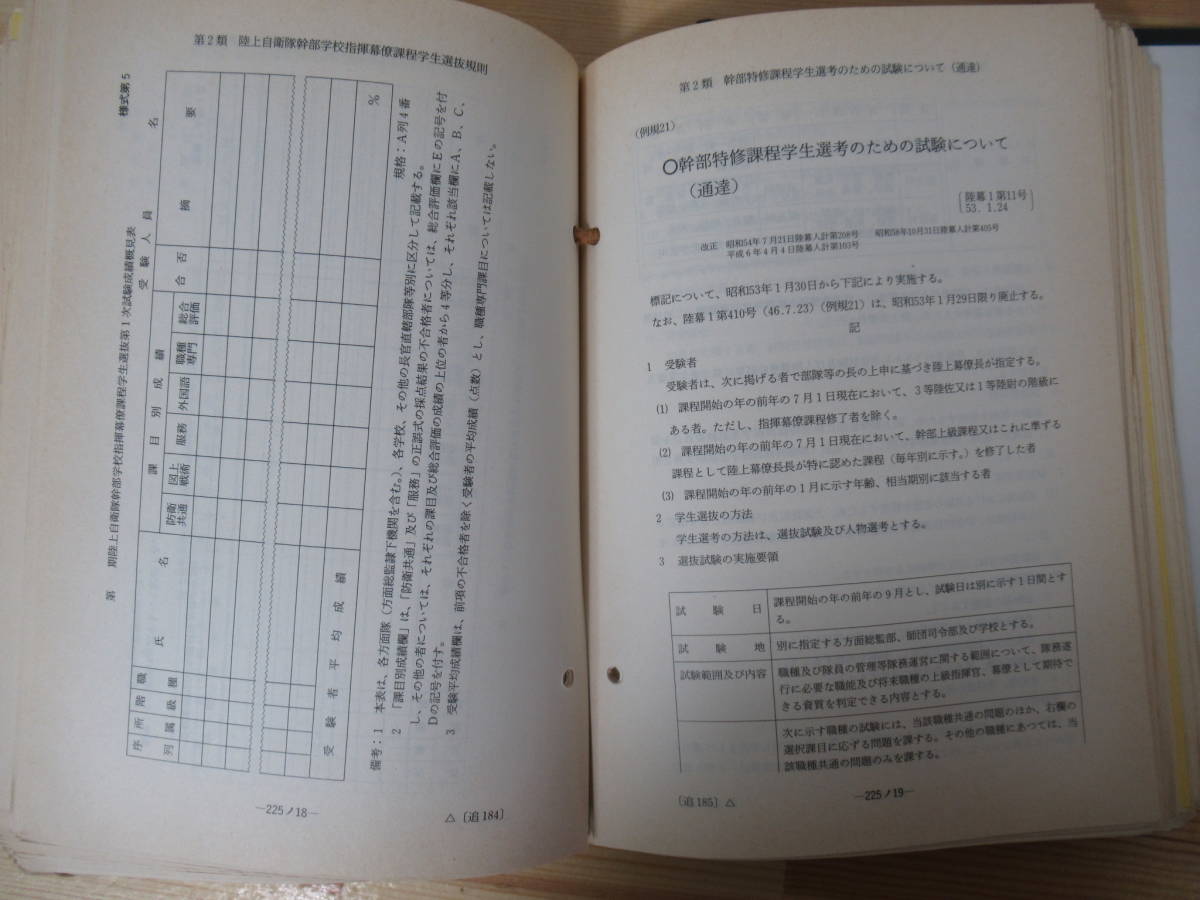 第2類 陸上自衛隊幹部学校指揮幕僚課程学生選抜規則
様式第5
第 期陸上自衛隊幹部学校指揮幕僚課程学生選抜第1次試験成績概見表
受験人員 名
序列
所属
階級
職種
氏名
課目別成績
防衛共通
図上戦術
服務
外国語
職種専門
総合評価
合否
摘要
受験者平均成績
%
規格:A列4番
備考:1 本表は、各方面隊(方面総監隷下機関を含む。)、各学校、その他の長官直轄部隊等別に区分して記載する。
2 「課目別成績欄」は、「防衛共通」及び「服務」の正誤式の採点結果の不合格者については、総合評価欄にEの記号を付
し、その他の者については、それぞれの課目及び総合評価の成績の上位の者から4等分し、それぞれ該当欄にA、B、C、
Dの記号を付す。
3 受験平均成績欄は、前項の不合格者を除く受験者の平均成績(点数)とし、職種専門課目については記載しない。
—225ノ18—
△〔追184〕
第2類 幹部特修課程学生選考のための試験について(通達)
(例規21)
〇幹部特修課程学生選考のための試験について
(通達)
陸幕1第11号
53.1.24
改正 昭和54年7月21日陸幕人計第208号 昭和58年10月31日陸幕人計第405号
平成6年4月4日陸幕人計第103号
標記について、昭和53年1月30日から下記により実施する。
なお、陸幕1第410号(46.7.23)(例規21)は、昭和53年1月29日限り廃止する。
記
1 受験者
受験者は、次に掲げる者で部隊等の長の上申に基づき陸上幕僚長が指定する。
(1) 課程開始の年の前年の7月1日現在において、3等陸佐又は1等陸尉の階級に
ある者。ただし、指揮幕僚課程修了者を除く。
(2) 課程開始の年の前年の7月1日現在において、幹部上級課程又はこれに準ずる
課程として陸上幕僚長長が特に認めた課程(毎年別に示す。)を修了した者
(3) 課程開始の年の前年の1月に示す年齢、相当期別に該当する者
2 学生選抜の方法
学生選考の方法は、選抜試験及び人物選考とする。
3 選抜試験の実施要領
試験日
課程開始の年の前年の9月とし、試験日は別に示す1日間とす
る。
試験地
別に指定する方面総監部、師団司令部及び学校とする。
試験範囲及び内容
職種及び隊員の管理等隊務運営に関する範囲について、隊務遂
行に必要な職能及び将来職種の上級指揮官、幕僚として期待で
きる資質を判定できる内容とする。
次に示す職種の試験には、当該職種共通の問題のほか、右欄の
選択課目に応ずる問題を課する。その他の職種にあつては、当
該職種共通の問題のみを課する。
〔追185〕△
—225ノ19—